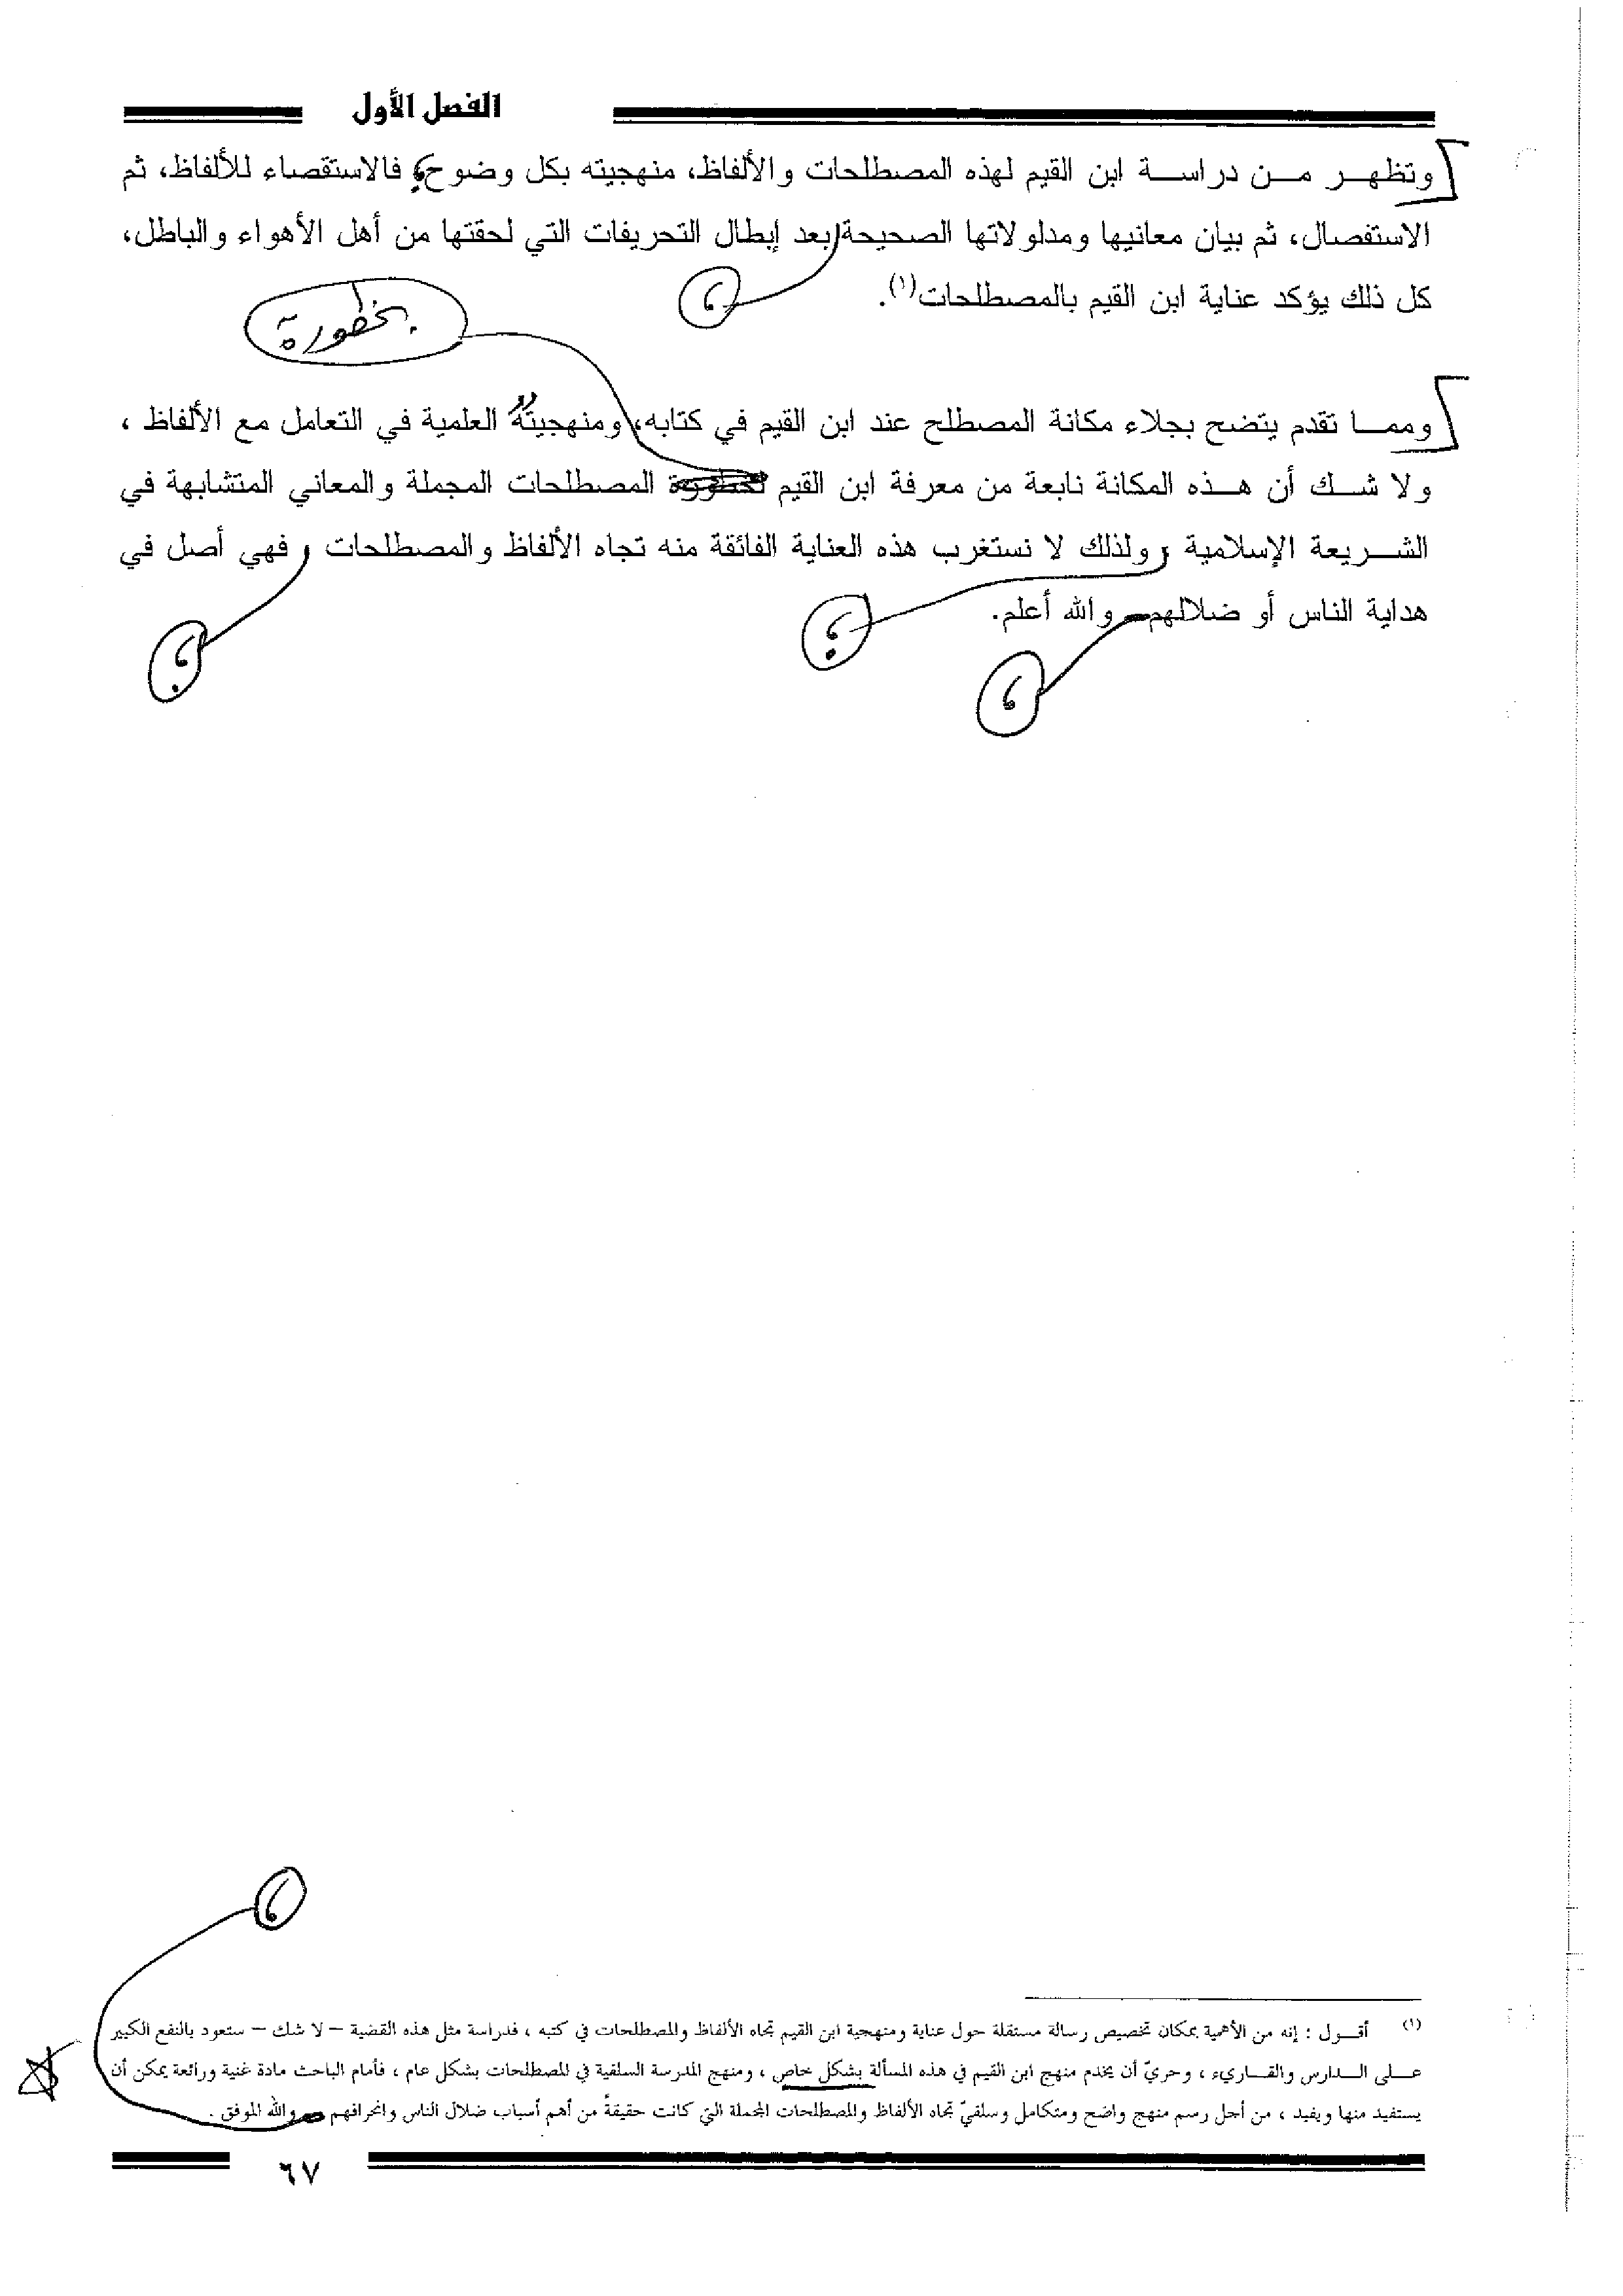 الفصل الأول
وتظهر من دراسة ابن القيم لهذه المصطلحات والألفاظ، منهجيته بكل وضوح؛ فالاستقصاء للألفاظ، ثم
الاستفصال، ثم بيان معانيها ومدلولاتها الصحيحة بعد إبطال التحريفات التي لحقتها من أهل الأهواء والباطل،
،
كل ذلك يؤكد عناية ابن القيم بالمصطلحات(١).
بخطورة
ومما تقدم يتضح بجلاء مكانة المصطلح عند ابن القيم في كتابه، ومنهجيته العلمية في التعامل مع الألفاظ ،
ولا شك أن هذه المكانة نابعة من معرفة ابن القيم لخطورة المصطلحات المجملة والمعاني المتشابهة في
الشريعة الإسلامية ، ولذلك لا نستغرب هذه العناية الفائقة منه تجاه الألفاظ والمصطلحات ، فهي أصل في
هداية الناس أو ضلالهم والله أعلم.
؛
؛
،
،
(١) أقول : إنه من الأهمية بمكان تخصيص رسالة مستقلة حول عناية ومنهجية ابن القيم تجاه الألفاظ والمصطلحات في كتبه ، فدراسة مثل هذه القضية – لا شك – ستعود بالنفع الكبير
على الدارس والقاريء ، وحريّ أن يخدم منهج ابن القيم في هذه المسألة بشكل خاص ، ومنهج المدرسة السلفية في المصطلحات بشكل عام ، فأمام الباحث مادة غنية ورائعة يمكن أن
يستفيد منها ويفيد ، من أجل رسم منهج واضح ومتكامل وسلفيّ تجاه الألفاظ والمصطلحات المجملة التي كانت حقيقةً من أهم أسباب ضلال الناس وانحرافهم والله الموفق .
٦٧